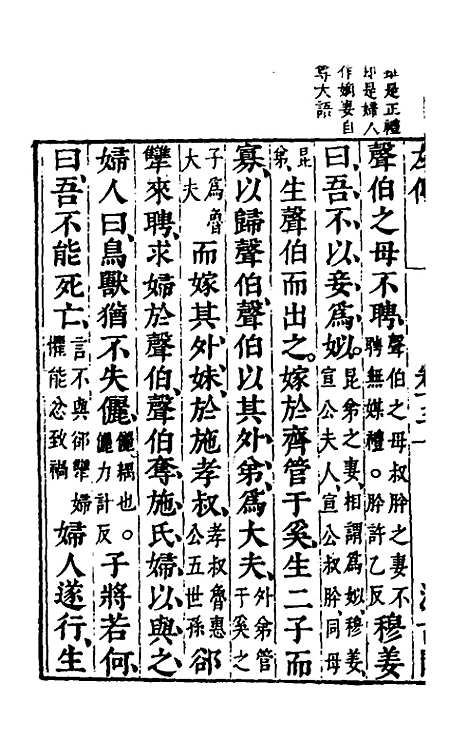 是正禮
却是婦人
作姻妻自
尊大語
聲伯之母不聘聲伯之母叔肸之妻不聘無媒禮○肸許乙反穆姜
曰吾不以妾爲姒昆弟之妻相謂爲姒穆姜宣公夫人宣公叔肸同母
昆弟生聲伯而出之嫁於齊管于奚生二子而
寡以歸聲伯聲伯以其外弟爲大夫外弟管于奚之
子爲魯大夫而嫁其外妹於施孝叔孝叔魯惠公五世孫郤
犫來聘求婦於聲伯聲伯奪施氏婦以與之
婦人曰鳥獸猶不失儷儷耦也○儷力計反子將若何
曰吾不能死亡言不與郤犫婦懼能忿致禍婦人遂行生